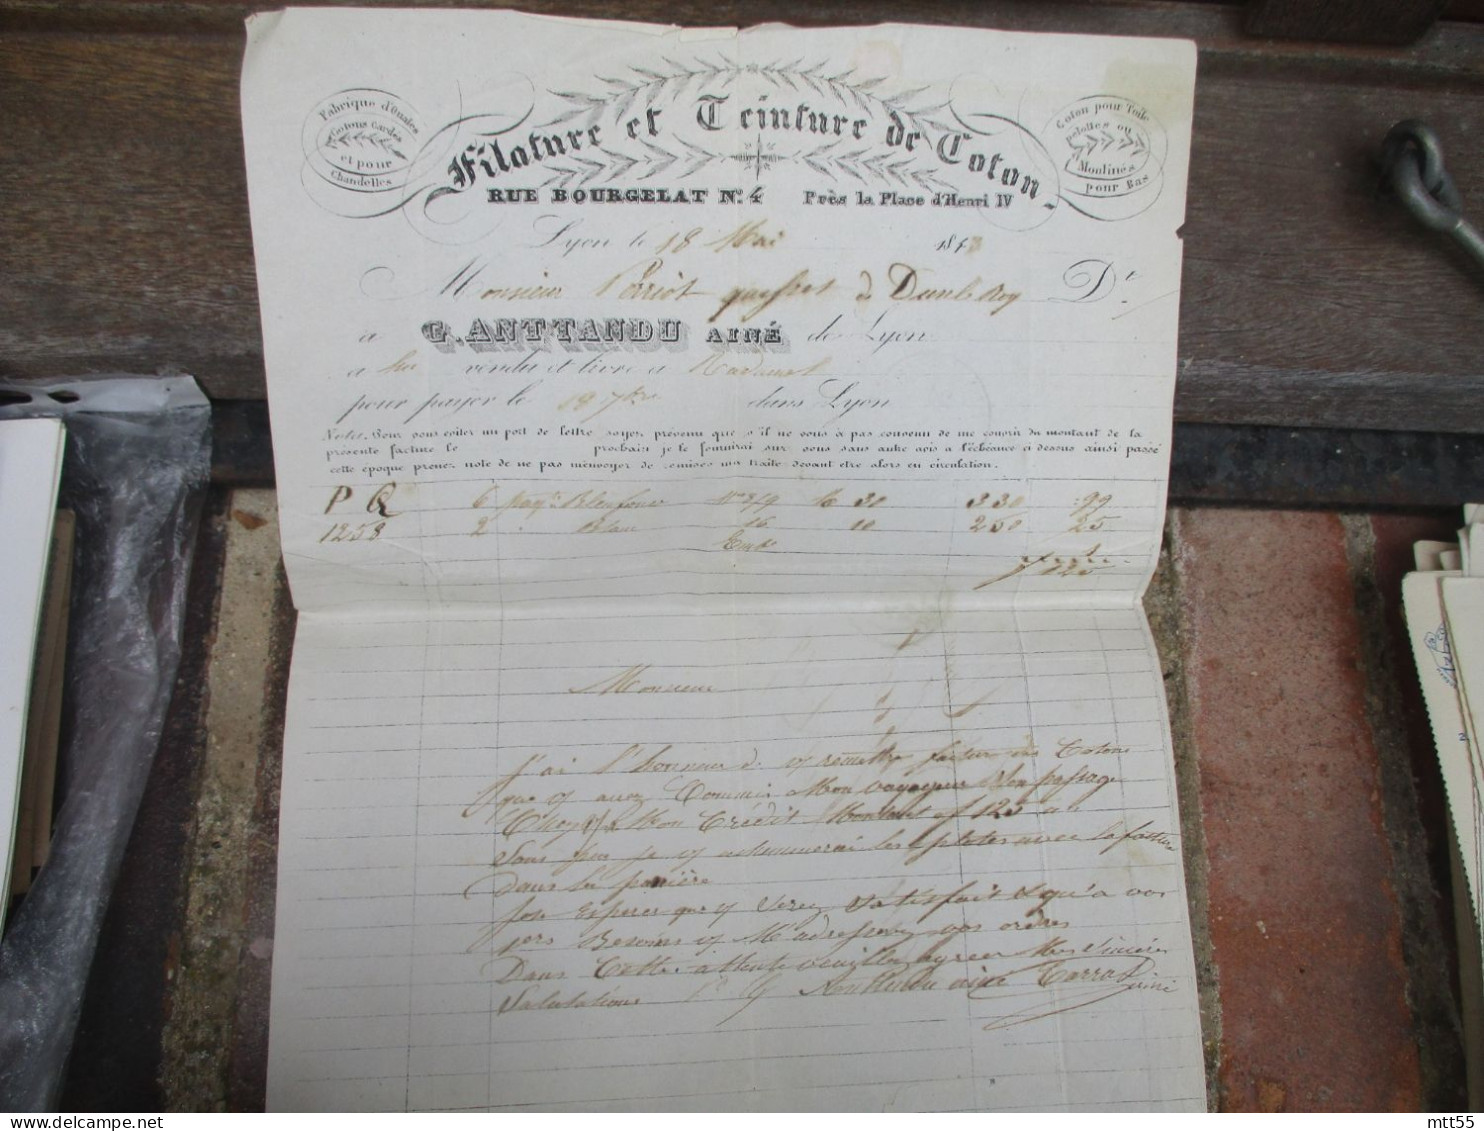 Fabrique d'Ouates
Cotons Cardés
et pour
Chandelles
Filature et Teinture de Coton
Coton pour Toile
pelottes ou
Moulinés
pour Bas
RUE BOURGELAT No. 4 Près la Place d'Henri IV
Lyon le 18 Mai 184
Monsieur Perriot de Dun le Roy Dt.
à G. ANTTANDU AINÉ de Lyon
à lui vendu et livré à
pour payer le 18 7bre dans Lyon
Nota. Pour vous éviter un port de lettre soyez prévenu que s'il ne vous à pas convenu de me couvrir du montant de la
présente facture le prochain je le fournirai sur vous sans autre avis à l'échéance ci dessus ainsi passé
cette époque prenez note de ne pas m'envoyer de remises ma traite devant être alors en circulation.
P Q 6 paq. 30 3 30 99
1258 2 Blanc 16 10 2 50 25
f 125
Monsieur
J'ai l'honneur de v remettre facture des Cotons
que v avez Commis a Mon voyageur a Son passage
Mon Crédit Montant f 125
Sous peu je v les avec la facture
dans la
Jose Esperer que v Serez Satisfait & qu'a vos
Besoins v M'adresserez vos ordres
Dans Cette attente veuillez agreer Mes Sincères
Salutations Pr G Anttandu ainé
ainé
mtt55